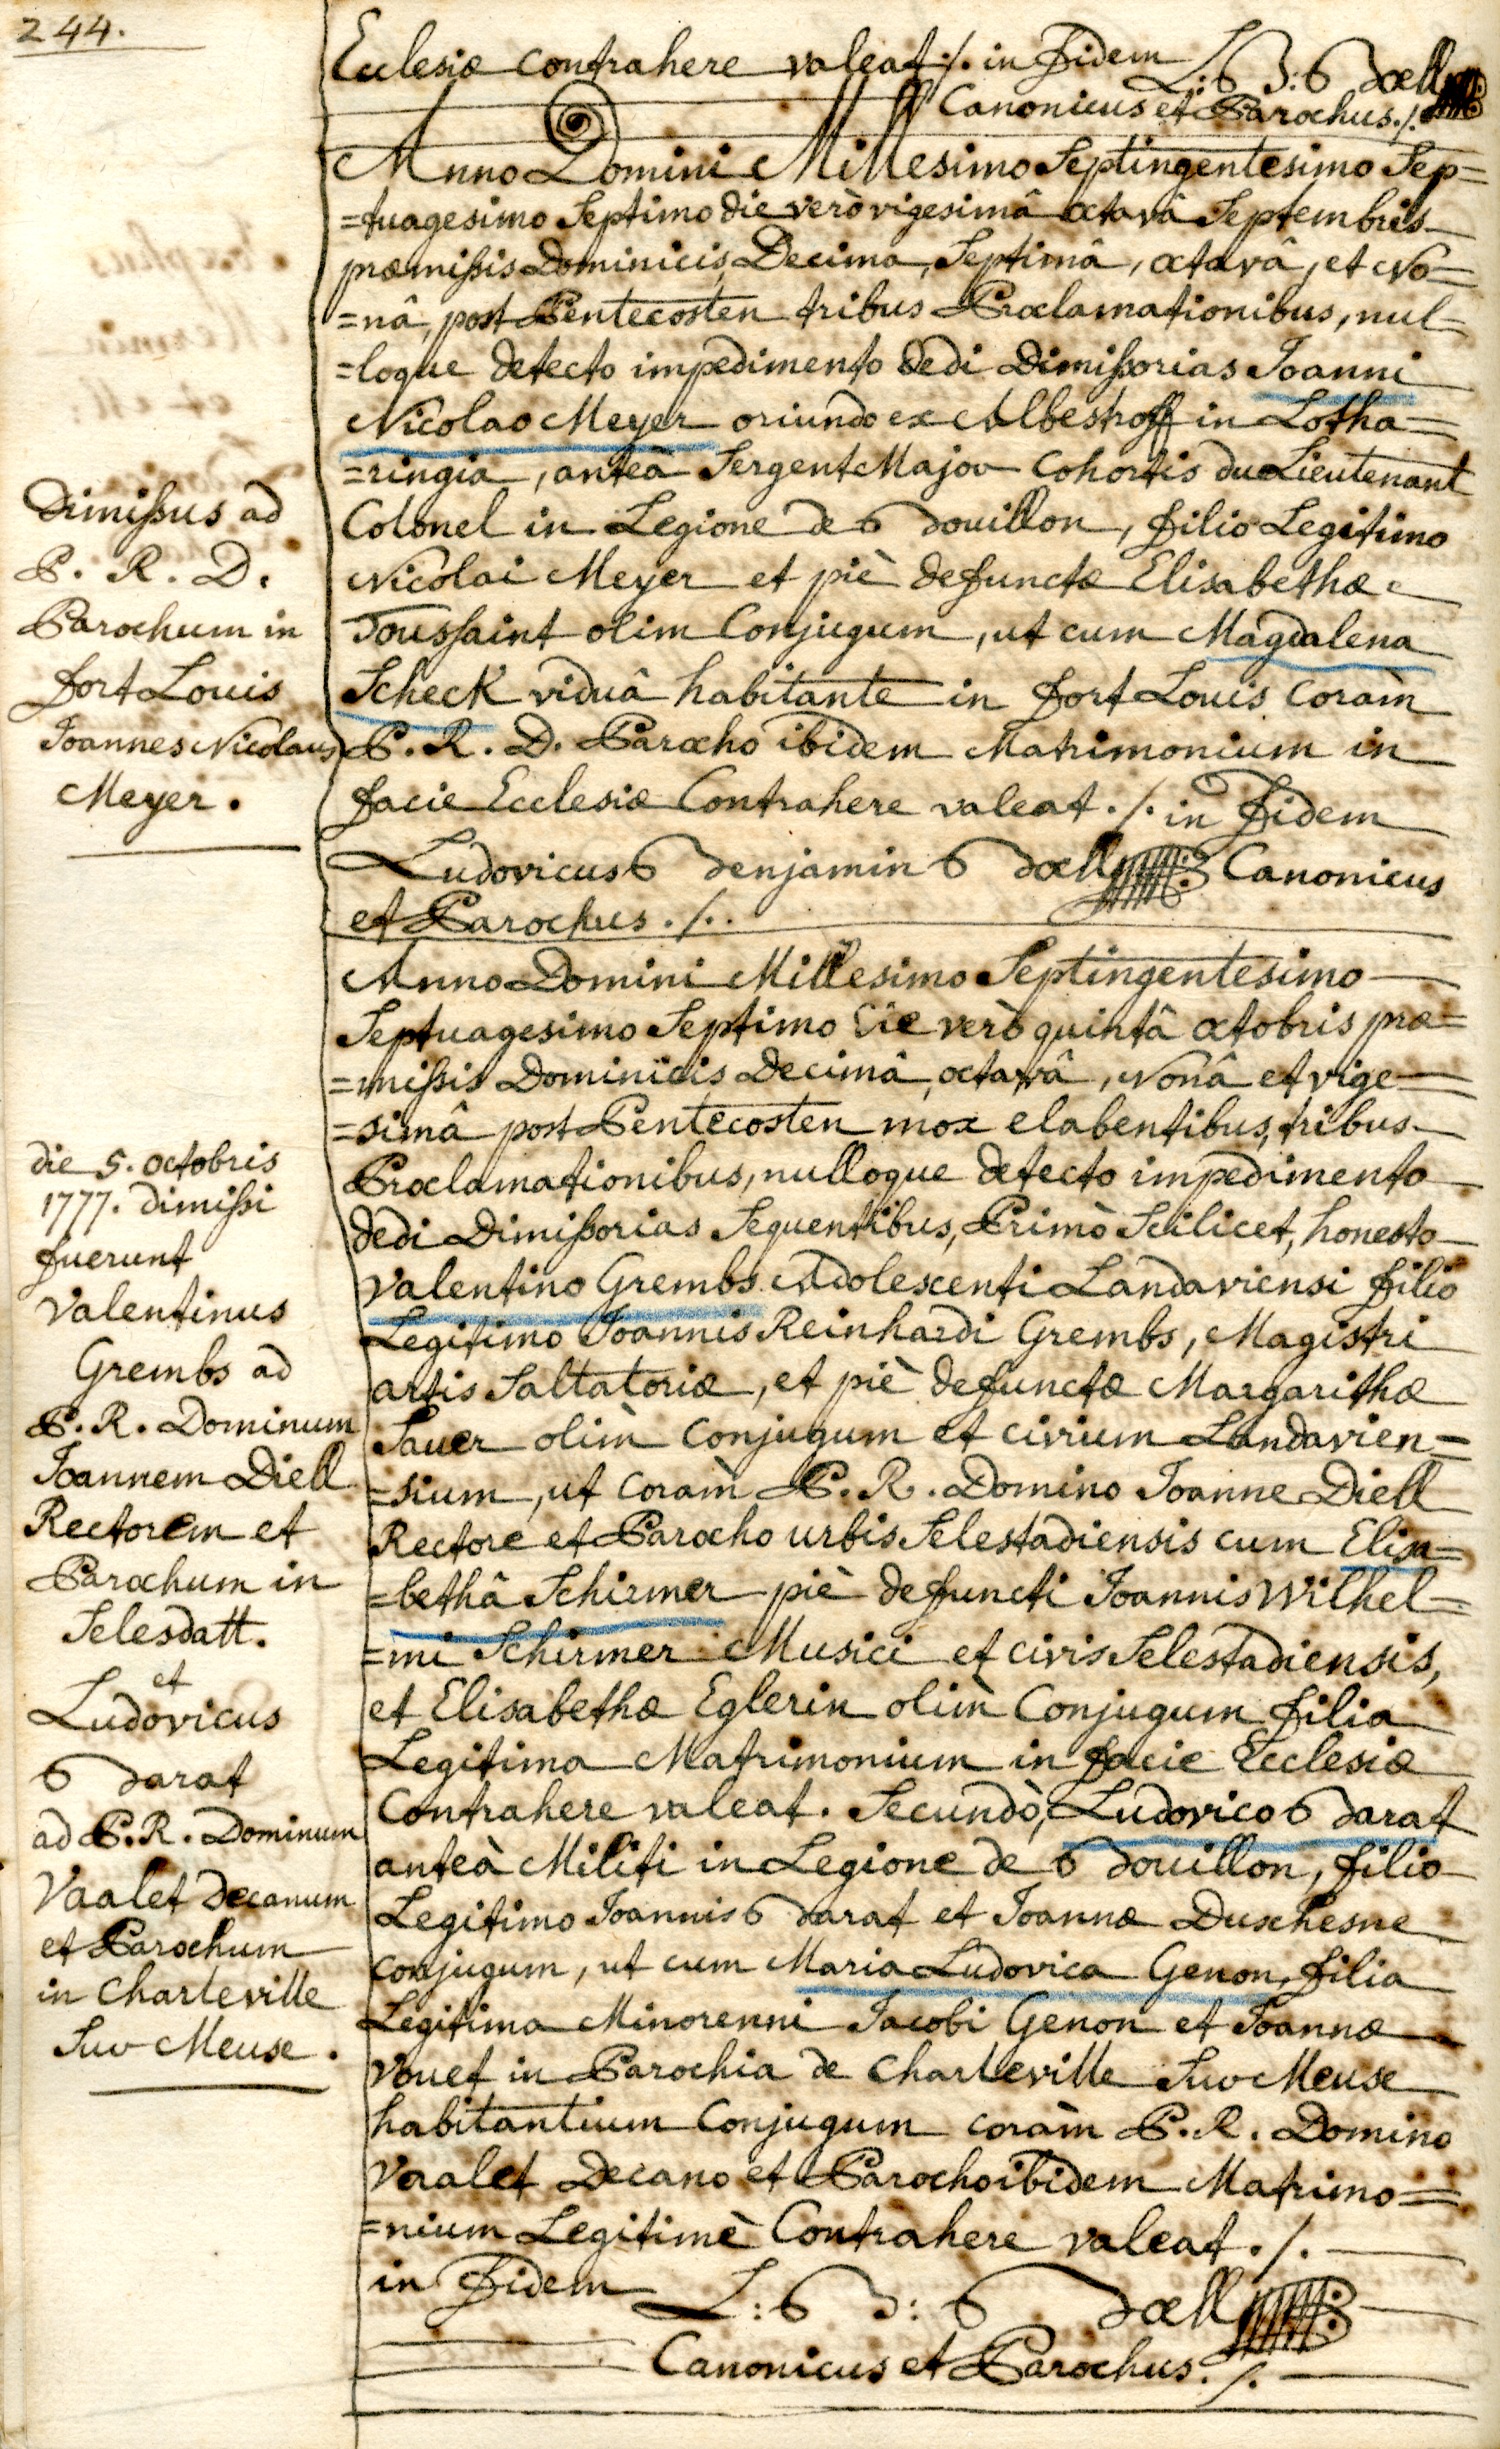 244.
Ecclesiæ Contrahere valeat ./. in Fidem L: B: Boell
Canonicus et Parochus ./.
Anno Domini Millesimo Septingentesimo Sep=
=tuagesimo Septimo die verò vigesimâ octavâ Septembris
præmissis Dominicis Decima, Septimâ, octavâ, et No=
=nâ, post Pentecosten tribus Proclamationibus, nul=
=loque detecto impedimento dedi Dimissorias Joanni
Nicolao Meyer oriundo ex Albestroff in Lotha=
=ringia, anteà Sergent Major Cohortis du Lieutenant
Colonel in Legione de Bouillon, filio Legitimo
Nicolai Meyer et piè defunctæ Elisabethæ
Toussaint olim Conjugum, ut cum Magdalena
Scheck viduâ habitante in fort Louis coràm
P. R. D. Parocho ibidem Matrimonium in
facie Ecclesiæ Contrahere valeat ./. in Fidem
Ludovicus Benjamin Boell Canonicus
et Parochus ./..
Dimissus ad
P. R. D.
Parochum in
fort Louis
Joannes Nicolaus
Meyer.
Anno Domini Millesimo Septingentesimo
Septuagesimo Septimo Die verò quintâ octobris præ=
=missis Dominicis Decimâ, octavâ, Nonâ et vige=
=simâ post Pentecosten mox elabentibus, tribus
Proclamationibus, nulloque detecto impedimento
dedi Dimissorias Sequentibus, Primò Scilicet, honesto
Valentino Grembs Adolescenti Landaviensi filio
Legitimo Joannis Reinhardi Grembs, Magistri
artis Saltatoriæ, et piè defunctæ Margarithæ
Sauer olìm Conjugum et civium Landavien=
=sium, ut coràm P. R. Domino Joanne Diell
Rectore et Parocho urbis Selestadiensis cum Elisa=
=bethâ Schirmer piè defuncti Joannis Wilhel=
=mi Schirmer Musici et civis Selestadiensis,
et Elisabethæ Eglerin olìm Conjugum filia
Legitima Matrimonium in facie Ecclesiæ
Contrahere valeat. Secundò, Ludovico Barat
anteà Militi in Legione de Bouillon, filio
Legitimo Joannis Barat et Joannæ Duschesne
conjugum, ut cum Maria Ludovica Genon, filia
Legitima Minorenni Jacobi Genon et Joannæ
Vouet in Parochia de Charleville Sur Meuse
habitantium Conjugum coràm P. R. Domino
Vaalet Decano et Parocho ibidem Matrimo=
=nium Legitimè Contrahere valeat ./.
in Fidem L: B: Boell
Canonicus et Parochus ./.
die 5. octobris
1777. dimissi
fuerunt
Valentinus
Grembs ad
P. R. Dominum
Joannem Diell
Rectorem et
Parochum in
Selesdatt.
et
Ludovicus
Barat
ad P. R. Dominum
Vaalet Decanum
et Parochum
in Charleville
Sur Meuse.